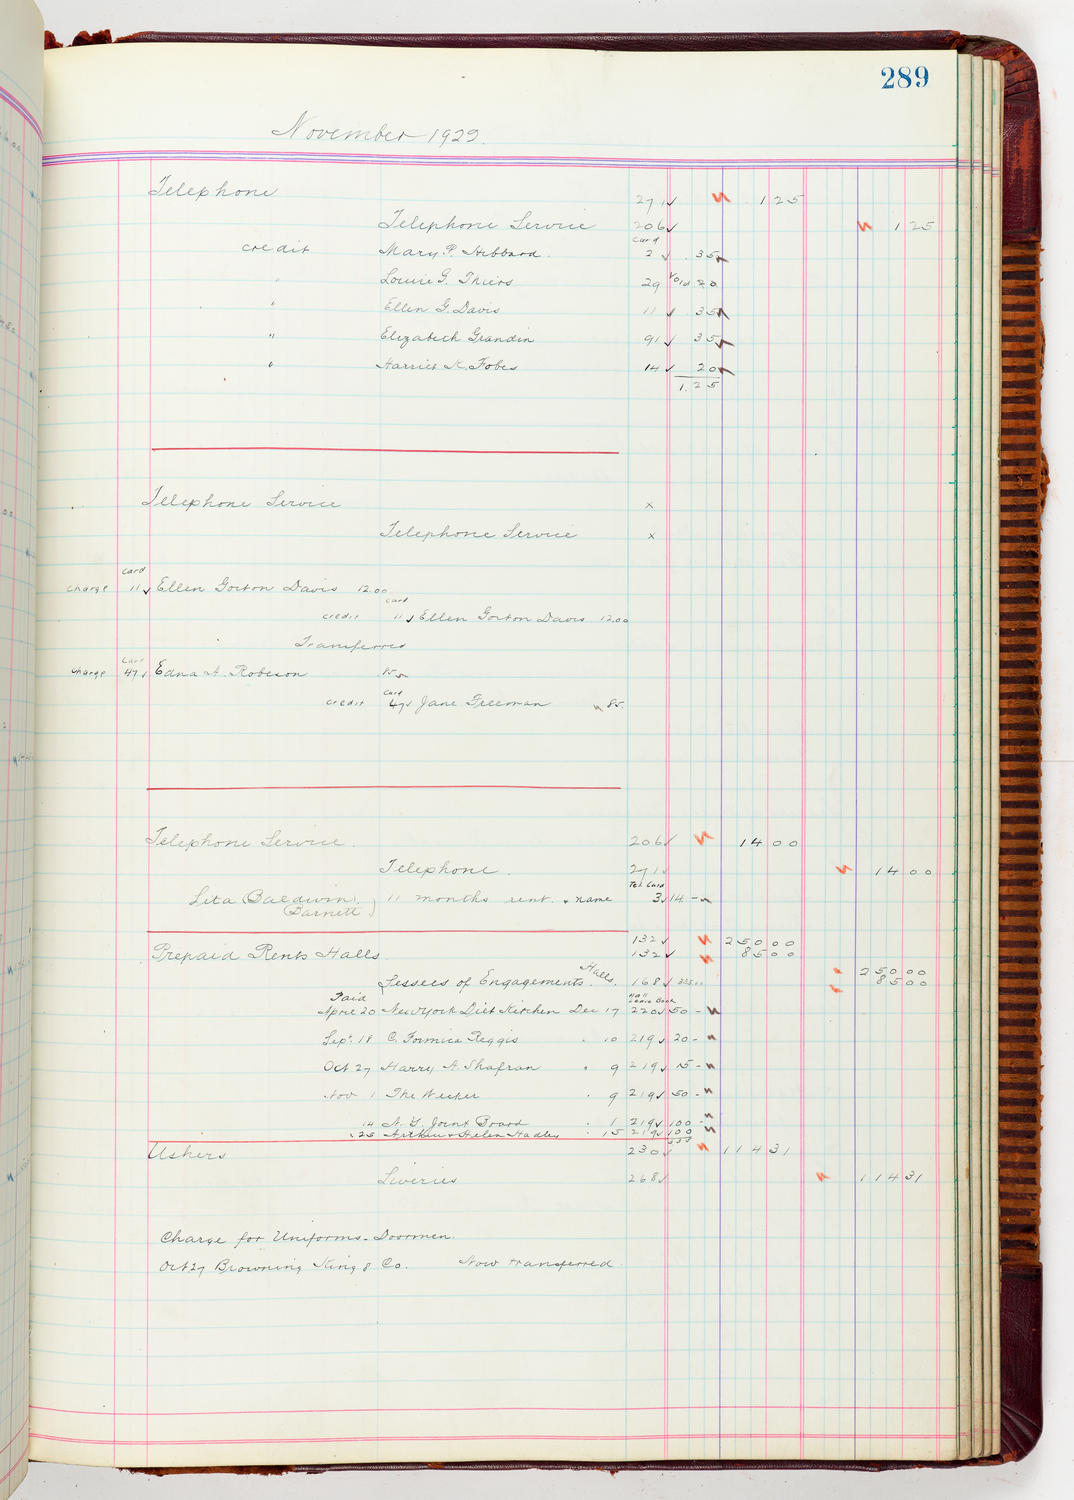 289
November 1922.
Telephone 271 ✓ 1 25
Telephone Service 206 ✓ 1 25
Card
credit Mary P. Hibbard. 2 ✓ .35
" Louise G. Thiers 29 Void 20
" Ellen G. Davis 11 ✓ 35
" Elizabeth Grandin 91 ✓ 35
" Harriet K. Fobes 14 ✓ 20
1.25
Telephone Service x
Telephone Service x
Card
Charge 11 ✓ Ellen Gorton Davis 12.00
Card
credit 11 ✓ Ellen Gorton Davis 12.00
Transferred
Card
Charge 47 ✓ Edna A. Robeson 85
Card
credit 47 ✓ Jane Freeman 85.
Telephone Service. 206 ✓ 14 00
Telephone. 271 ✓ 14 00
Tel. Card
Lita Baldwin Barnett) 11 months rent. & name 3 ✓ 14 -
Prepaid Rents Halls. 132 ✓ 250 00
132 ✓ 85 00
Lessees of Engagements. Halls. 168 ✓ 335.00 250 00
85 00
Paid Hall Lease Book
April 20 New York Diet Kitchen Dec 17 220 ✓ 50 -
Sept. 18 C. Formica Reggis " 10 219 ✓ 20 -
Oct 27 Harry A. Shafran " 9 219 ✓ 15 -
Nov 1 The " 9 219 ✓ 50 -
14 N.Y. Joint Board " 1 219 ✓ 100 -
25 Arthur & Helen Hadley " 15 219 ✓ 100
335
Ushers 230 ✓ 114 31
Liveries 268 ✓ 114 31
Charge for Uniforms - Doormen.
Oct 27 Browning King & Co. Now transferred